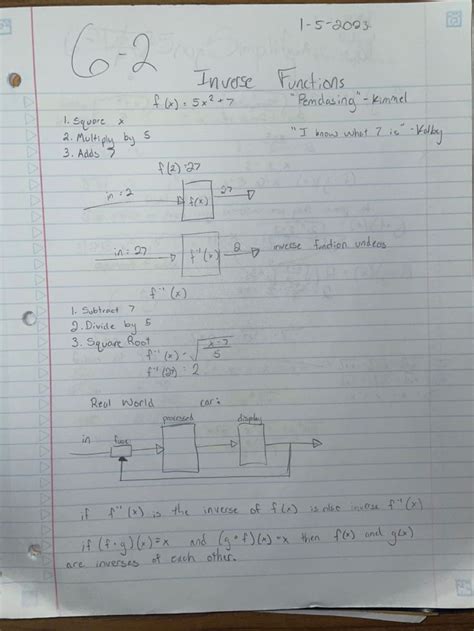 1-5-2023
6-2
Inverse Functions
f(x) = 5x² + 7 "Pemdasing" - Kimmel
1. Square x
2. Multiply by 5 "I know what 7 is" - Kolby
3. Adds 7
f(2) = 27
in = 2 f(x) 27
in = 27 f⁻¹(x) 2 inverse function undoes
f⁻¹(x)
1. Subtract 7
2. Divide by 5
3. Square Root
f⁻¹(x) = √((x-7)/5)
f⁻¹(27) = 2
Real World car:
processed display
in func
if f⁻¹(x) is the inverse of f(x) is also inverse f⁻¹(x)
if (f∘g)(x)=x and (g∘f)(x)=x then f(x) and g(x)
are inverses of each other.